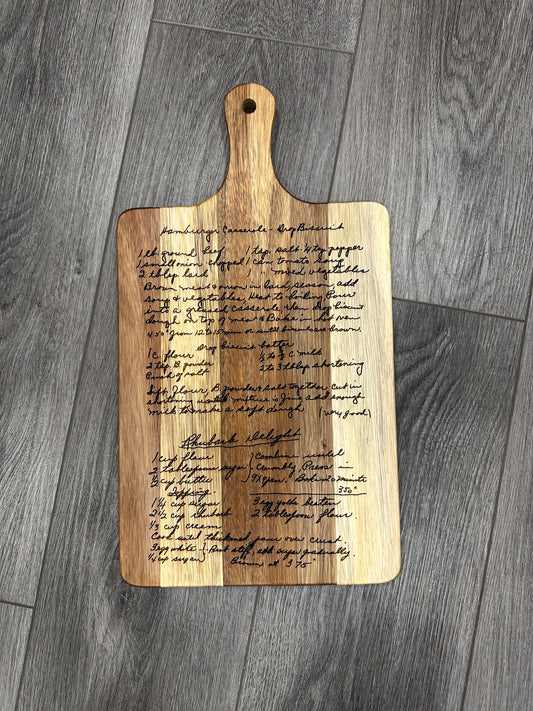 Hamburger Casserole - Drop Biscuit
1 lb ground beef 1 tsp. salt ¼ tsp pepper
1 small onion chopped 1 can tomato soup
2 tblsp lard 1 " mixed vegetables
Brown meat & onion in lard, season, add
soup & vegetables, Heat to boiling Pour
into a greased casserole, then drop biscuit
dough on top of meat & Bake in hot oven
450° from 12 to 15 min or until biscuits are brown.
Drop biscuit batter
1 C. flour ⅓ to ½ C milk
2 tsp B. powder 2 to 3 tblsp shortening
Pinch of salt
Sift Flour, B. powder & salt together, cut in
shortening until mixture is fine, add enough
milk to make a soft dough (very good)
Rhubarb Delight
1 cup flour ) Combine until
2 tablespoon sugar ) Crumbly, Press in
½ cup butter ) 9x9 pan. Bake 20 minute
Topping 350°
1¼ cup sugar 3 egg yolks beaten
2½ cup rhubarb 2 tablespoon flour.
⅓ cup cream
Cook until thickened, pour over crust.
3 egg white } Beat stiff, add sugar gradually.
¼ cup sugar } Brown at 375°